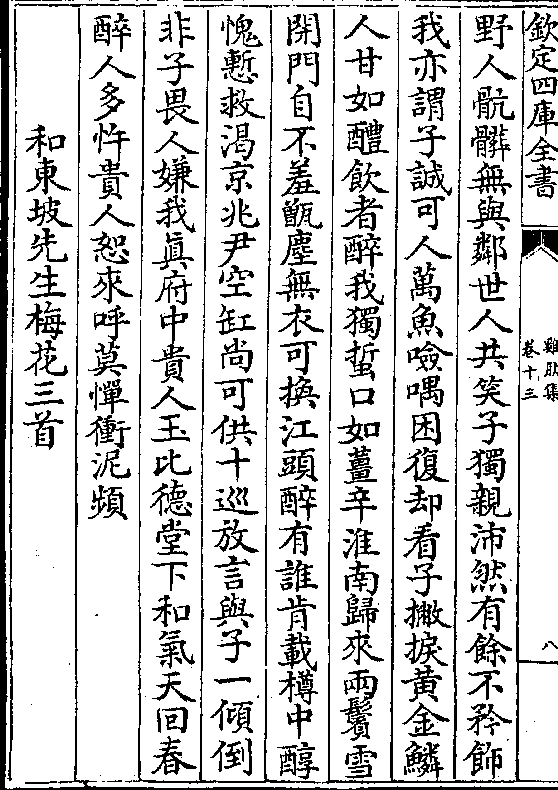 欽定四庫全書
雞肋集
卷十三
八
野人骯髒無與鄰世人共笑子獨親沛然有餘不矜飾
我亦謂子誠可人萬魚噞喁困復却看子撇捩黃金鱗
人甘如醴飲者醉我獨蜇口如薑辛淮南歸來兩鬢雪
開門自不羞甑塵無衣可換江頭醉有誰肯載樽中醇
愧慙救渴京兆尹空缸尚可供十巡放言與子一傾倒
非子畏人嫌我真府中貴人玉比德堂下和氣天回春
醉人多忤貴人恕來呼莫憚衝泥頻
和東坡先生梅花三首